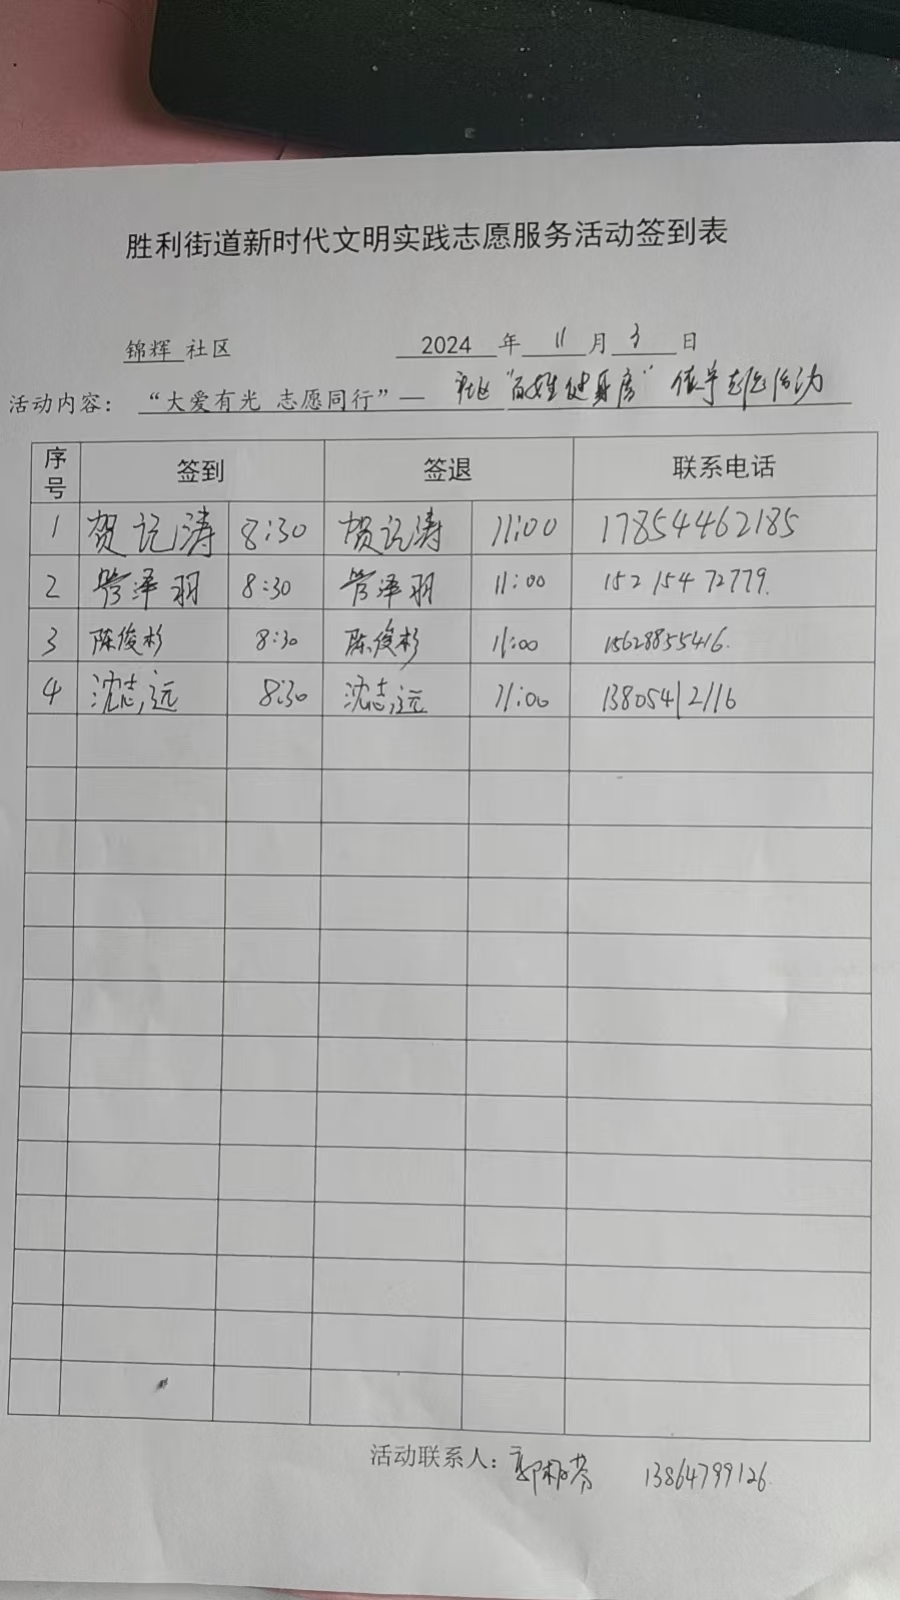 胜利街道新时代文明实践志愿服务活动签到表
锦辉 社区 2024 年 11 月 3 日
活动内容： “大爱有光 志愿同行”— “百姓健身房” 志愿活动
序号 签到 签退 联系电话
1 贺记涛 8:30 贺记涛 11:00 17854462185
2 管泽羽 8:30 管泽羽 11:00 15215472779.
3 陈俊杉 8:30 陈俊杉 11:00 15628855416.
4 沈志远 8:30 沈志远 11:00 13805412116
活动联系人： 13864799126.